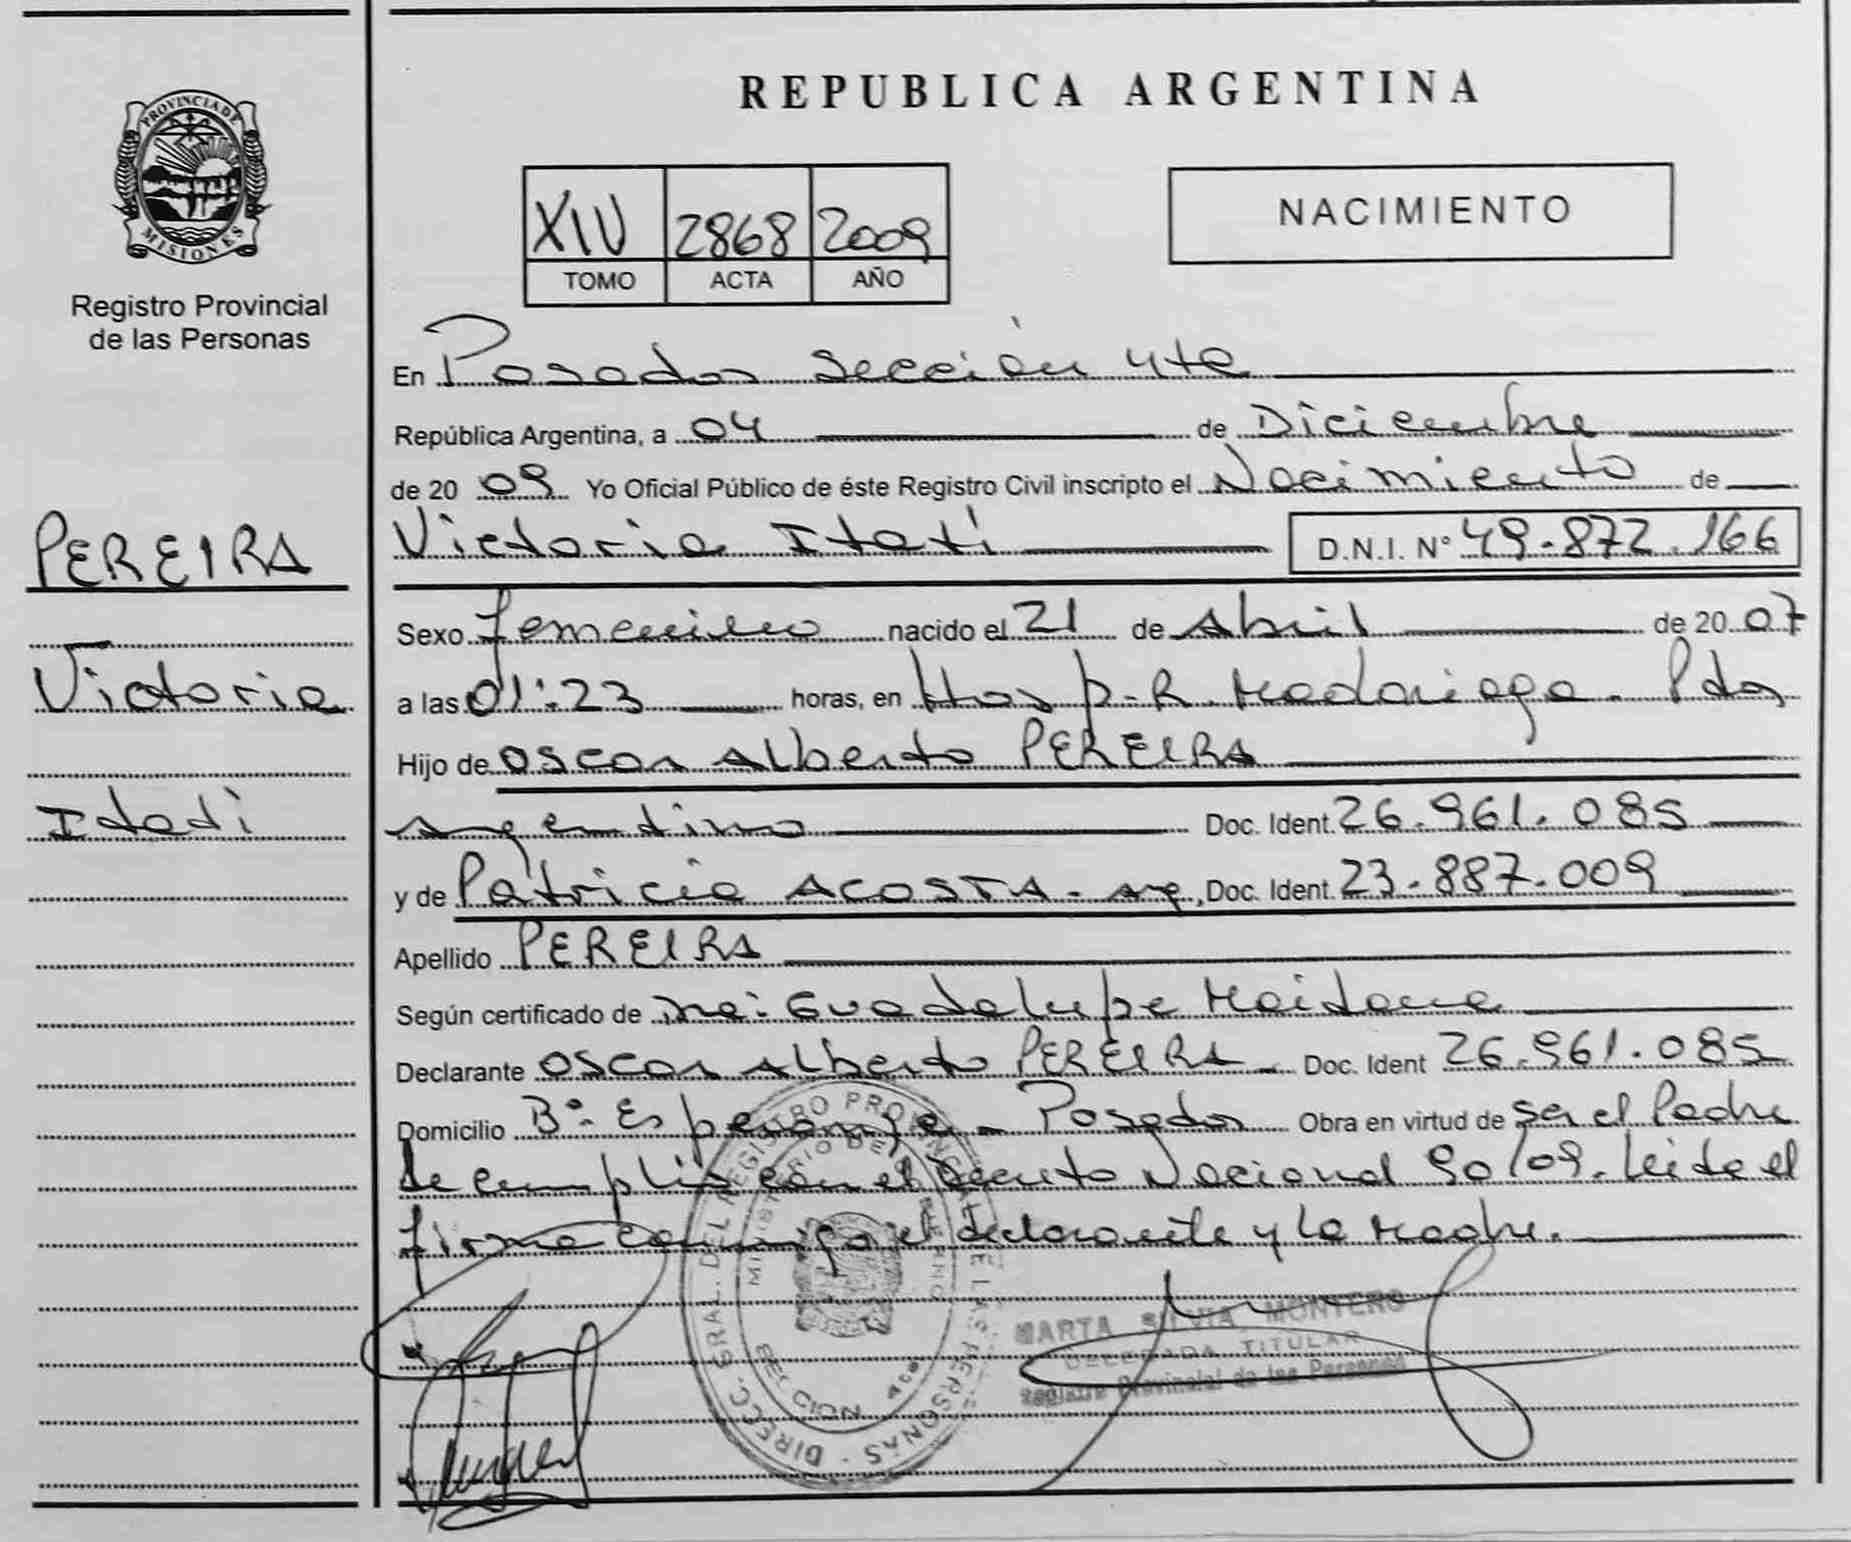 REPUBLICA ARGENTINA
PROVINCIA DE MISIONES
Registro Provincial
de las Personas
XIV 2868 2009
TOMO ACTA AÑO
NACIMIENTO
En Posadas Sección 4ta
República Argentina, a 04 de Diciembre
de 20 09 Yo Oficial Público de éste Registro Civil inscripto el Nacimiento de
Victoria Itatí D.N.I. N° 49.872.166
PEREIRA
Victoria
Itatí
Sexo femenino nacido el 21 de Abril de 20 07
a las 01:23 horas, en Hosp. R. Madariaga - Pdas
Hijo de Oscar Alberto PEREIRA
argentino Doc. Ident. 26.961.085
y de Patricia ACOSTA - arg, Doc. Ident. 23.887.009
Apellido PEREIRA
Según certificado de Guadalupe Maidana
Declarante Oscar Alberto PEREIRA Doc. Ident 26.961.085
Domicilio B° Esperanza - Posadas Obra en virtud de ser el Padre
Se cumplió con el Decreto Nacional 90/09. Leida el
firma conmigo el declarante y la Madre.
DIRECC. GRAL. DEL REGISTRO PROVINCIAL DE LAS PERSONAS
MINISTERIO DE
MARTA SILVIA MONTERO
DELEGADA TITULAR
Registro Provincial de las Personas